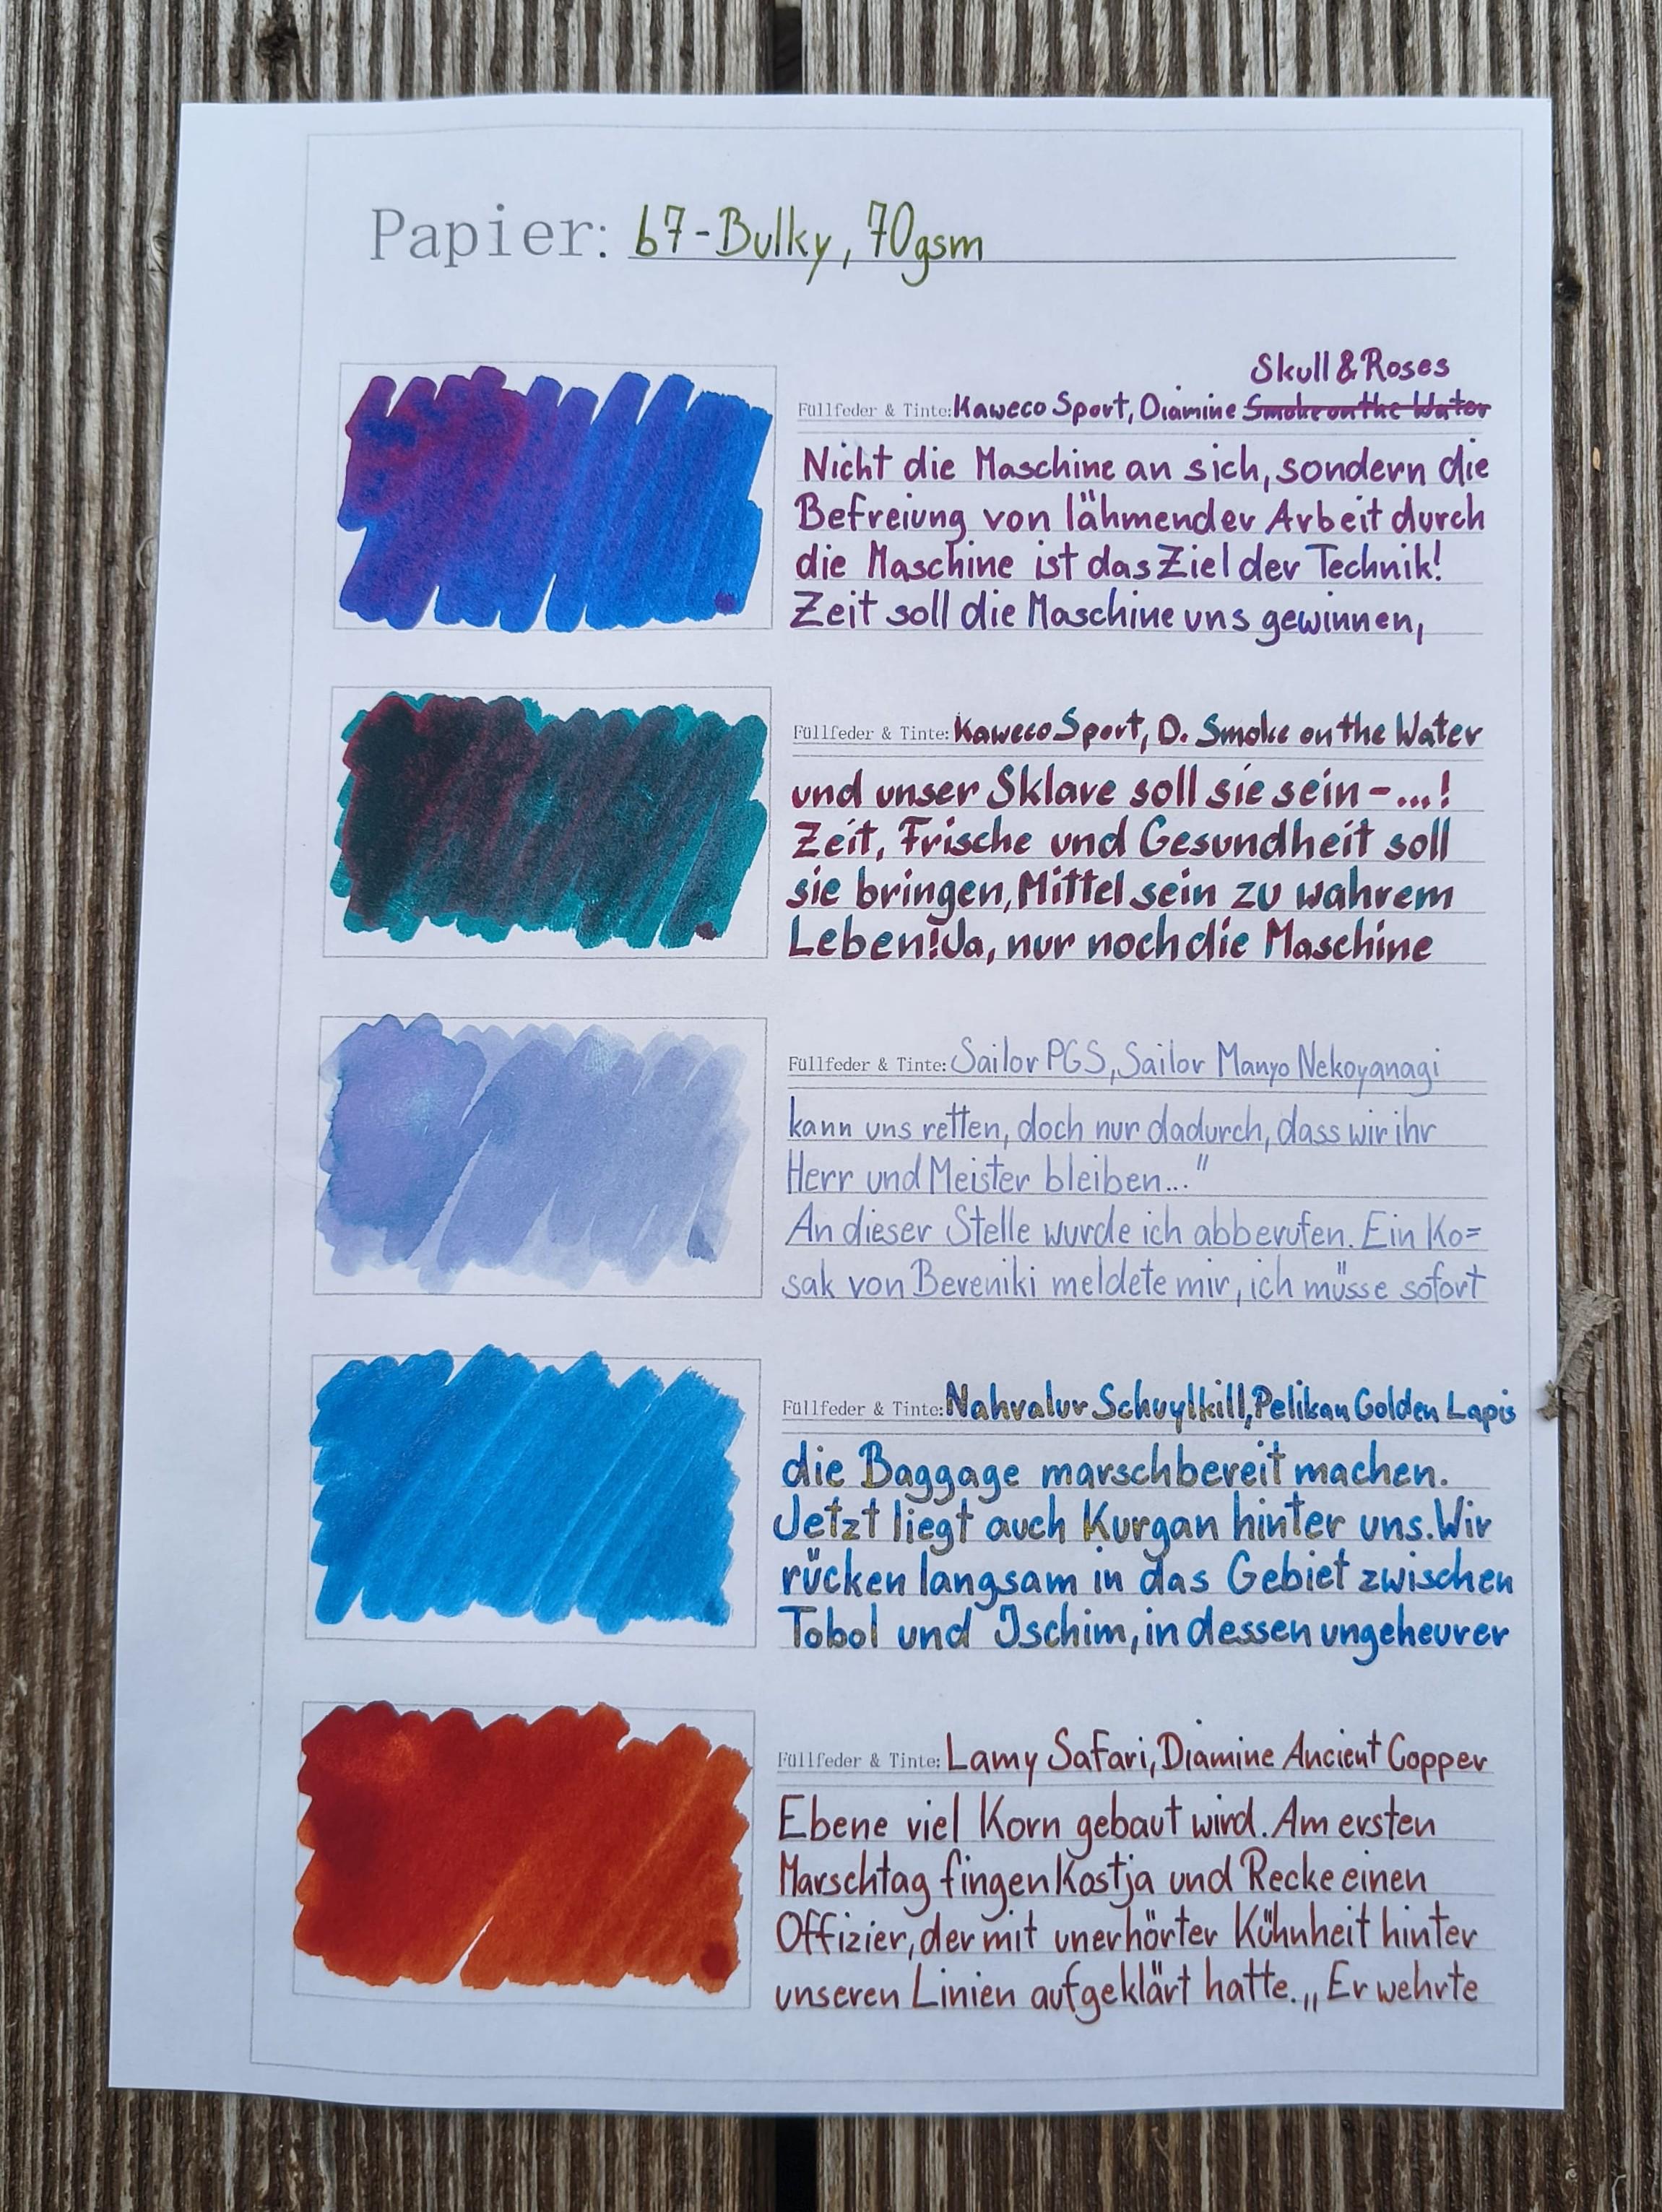 Papier: b7-Bulky, 70gsm
Skull & Roses
Füllfeder & Tinte: Kaweco Sport, Diamine Smoke on the Water
Nicht die Maschine an sich, sondern die
Befreiung von lähmender Arbeit durch
die Maschine ist das Ziel der Technik!
Zeit soll die Maschine uns gewinnen,
Füllfeder & Tinte: Kaweco Sport, D. Smoke on the Water
und unser Sklave soll sie sein-...!
Zeit, Frische und Gesundheit soll
sie bringen, Mittel sein zu wahrem
Leben! Ja, nur noch die Maschine
Füllfeder & Tinte: Sailor PGS, Sailor Manyo Nekoyanagi
kann uns retten, doch nur dadurch, dass wir ihr
Herr und Meister bleiben..."
An dieser Stelle wurde ich abberufen. Ein Ko=
sak von Bereniki meldete mir, ich müsse sofort
Füllfeder & Tinte: Nahvalur Schuylkill, Pelikan Golden Lapis
die Baggage marschbereit machen.
Jetzt liegt auch Kurgan hinter uns. Wir
rücken langsam in das Gebiet zwischen
Tobol und Ischim, in dessen ungeheurer
Füllfeder & Tinte: Lamy Safari, Diamine Ancient Copper
Ebene viel Korn gebaut wird. Am ersten
Marschtag fingen Kostja und Recke einen
Offizier, der mit unerhörter Kühnheit hinter
unseren Linien aufgeklärt hatte. „Er wehrte